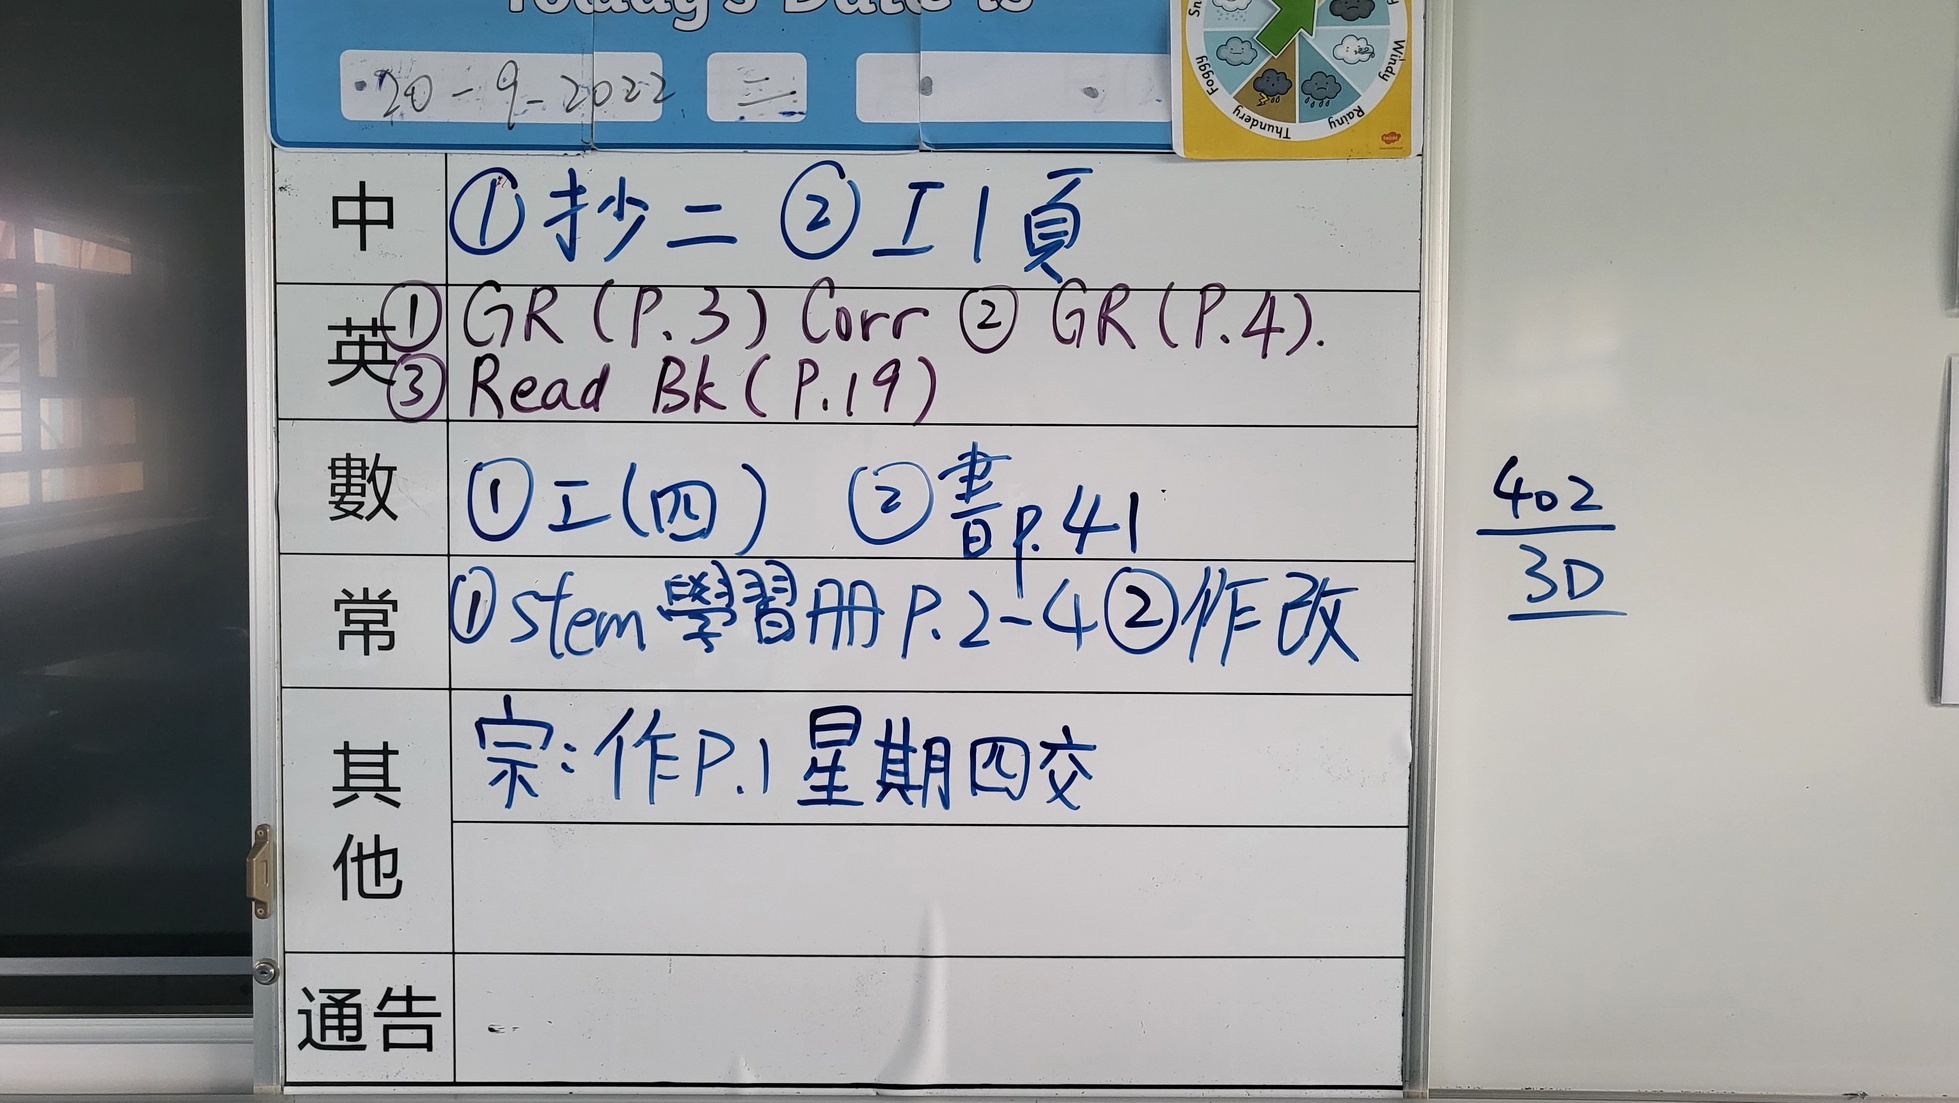 Today's Date is
20-9-2022 二
Foggy Thundery Rainy Windy
中 ① 抄二 ② 工1頁
英 ① GR (P.3) Corr ② GR (P.4).
③ Read Bk (P.19)
數 ① 工(四) ② 書p.41
常 ① stem學習册 P.2-4 ② 作改
其他 宗:作P.1星期四交
通告
402
3D